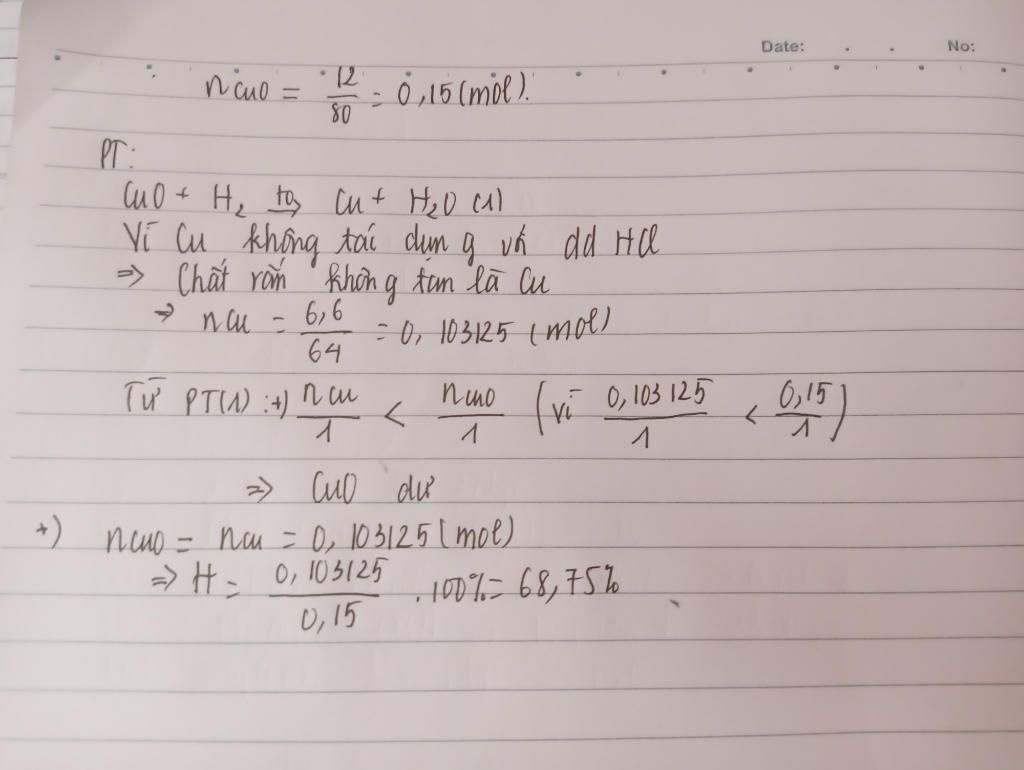 Date: . . No:
nCuO = 12/80 = 0,15 (mol).
PT:
CuO + H₂ t0→ Cu + H₂O (1)
Vì Cu không tác dụng với dd HCl
=> Chất rắn không tan là Cu
→ nCu = 6,6/64 = 0,103125 (mol)
Từ PT(1): +) nCu/1 < nCuO/1 (vì 0,103125/1 < 0,15/1)
=> CuO dư
+) nCuO = nCu = 0,103125 (mol)
=> H = 0,103125/0,15 . 100% = 68,75%